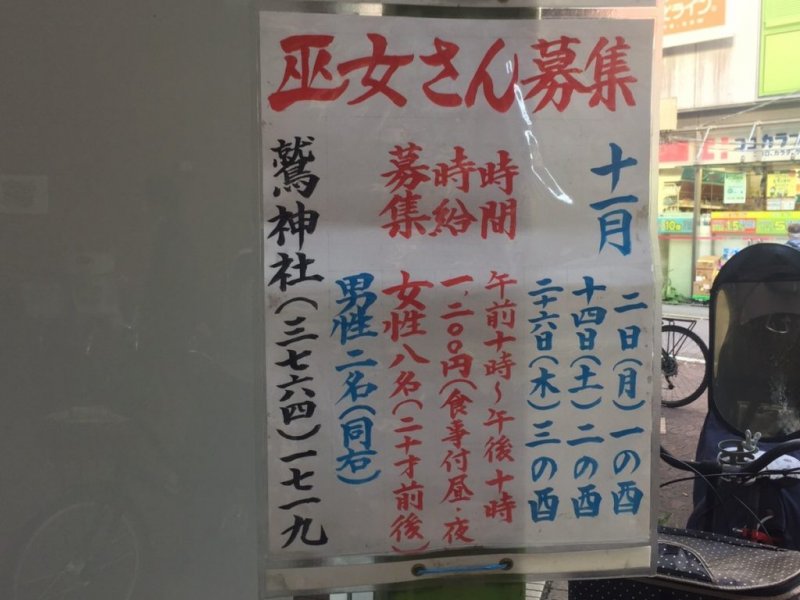 巫女さん募集
十一月
二日(月)一の酉
十四日(土)二の酉
二十六日(木)三の酉
時間 午前十時～午後十時
時給 一、二〇〇円(食事付昼・夜)
募集 女性八名(二十才前後)
男性二名(同右)
鷲神社(三七六四)一七一九